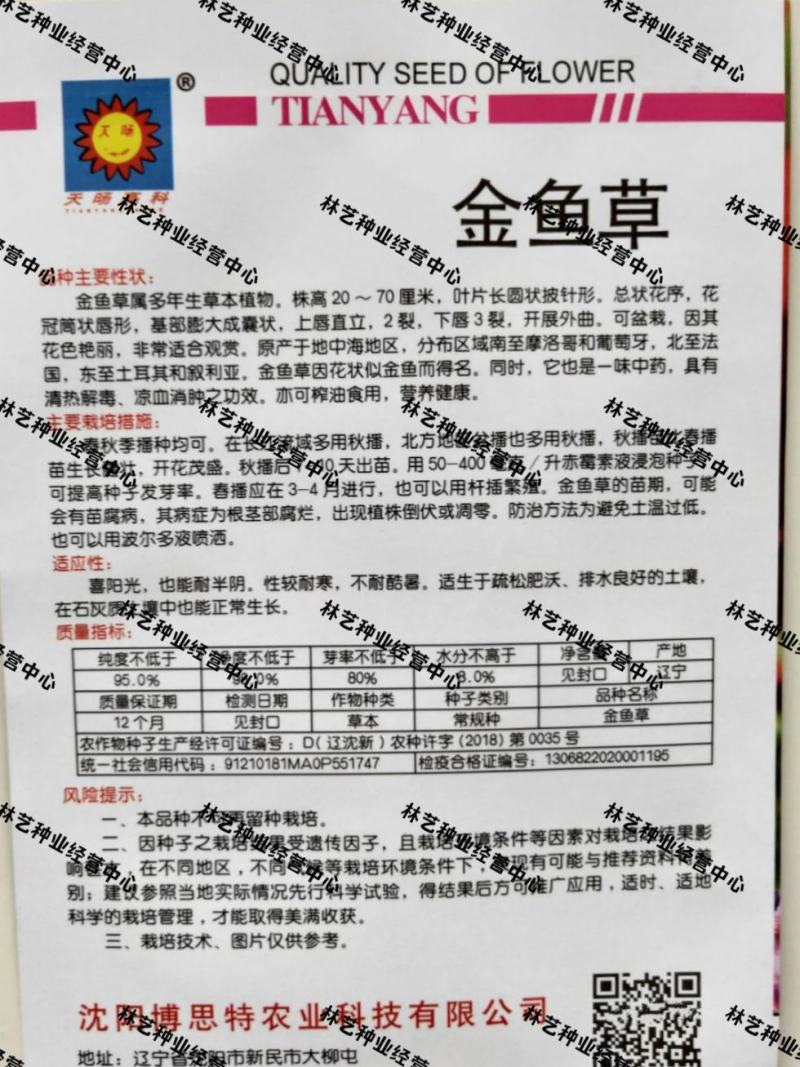 QUALITY SEED OF FLOWER
®
TIANYANG
天旸
天旸高科
金鱼草
品种主要性状：
金鱼草属多年生草本植物。株高20～70厘米，叶片长圆状披针形。总状花序，花
冠筒状唇形，基部膨大成囊状，上唇直立，2裂，下唇3裂，开展外曲。可盆栽，因其
花色艳丽，非常适合观赏。原产于地中海地区，分布区域南至摩洛哥和葡萄牙，北至法
国，东至土耳其和叙利亚。金鱼草因花状似金鱼而得名。同时，它也是一味中药，具有
清热解毒、凉血消肿之功效。亦可榨油食用，营养健康。
主要栽培措施：
春秋季播种均可。在长江流域多用秋播，北方地区盆播也多用秋播，秋播苗比春播
苗生长健壮，开花茂盛。秋播后7-10天出苗。用50-400毫克/升赤霉素液浸泡种子，
可提高种子发芽率。春播应在3-4月进行，也可以用杆插繁殖。金鱼草的苗期，可能
会有苗腐病，其病症为根茎部腐烂，出现植株倒伏或凋零。防治方法为避免土温过低。
也可以用波尔多液喷洒。
适应性：
喜阳光，也能耐半阴。性较耐寒，不耐酷暑。适生于疏松肥沃、排水良好的土壤，
在石灰质土壤中也能正常生长。
质量指标：
纯度不低于 净度不低于 芽率不低于 水分不高于 净含量 产地
95.0% 80% 8.0% 见封口 辽宁
质量保证期 检测日期 作物种类 种子类别 品种名称
12个月 见封口 草本 常规种 金鱼草
农作物种子生产经许可证编号：D(辽沈新)农种许字(2018)第0035号
统一社会信用代码：91210181MA0P551747 检疫合格证编号：1306822020001195
风险提示：
一、本品种不可再留种栽培。
二、因种子之栽培结果受遗传因子，且栽培环境条件等因素对栽培的结果影
响甚大，在不同地区，不同气候等栽培环境条件下，表现有可能与推荐资料有差
别；建议参照当地实际情况先行科学试验，得结果后方可推广应用，适时、适地
科学的栽培管理，才能取得美满收获。
三、栽培技术、图片仅供参考。
沈阳博思特农业科技有限公司
地址：辽宁省沈阳市新民市大柳屯
林艺种业经营中心